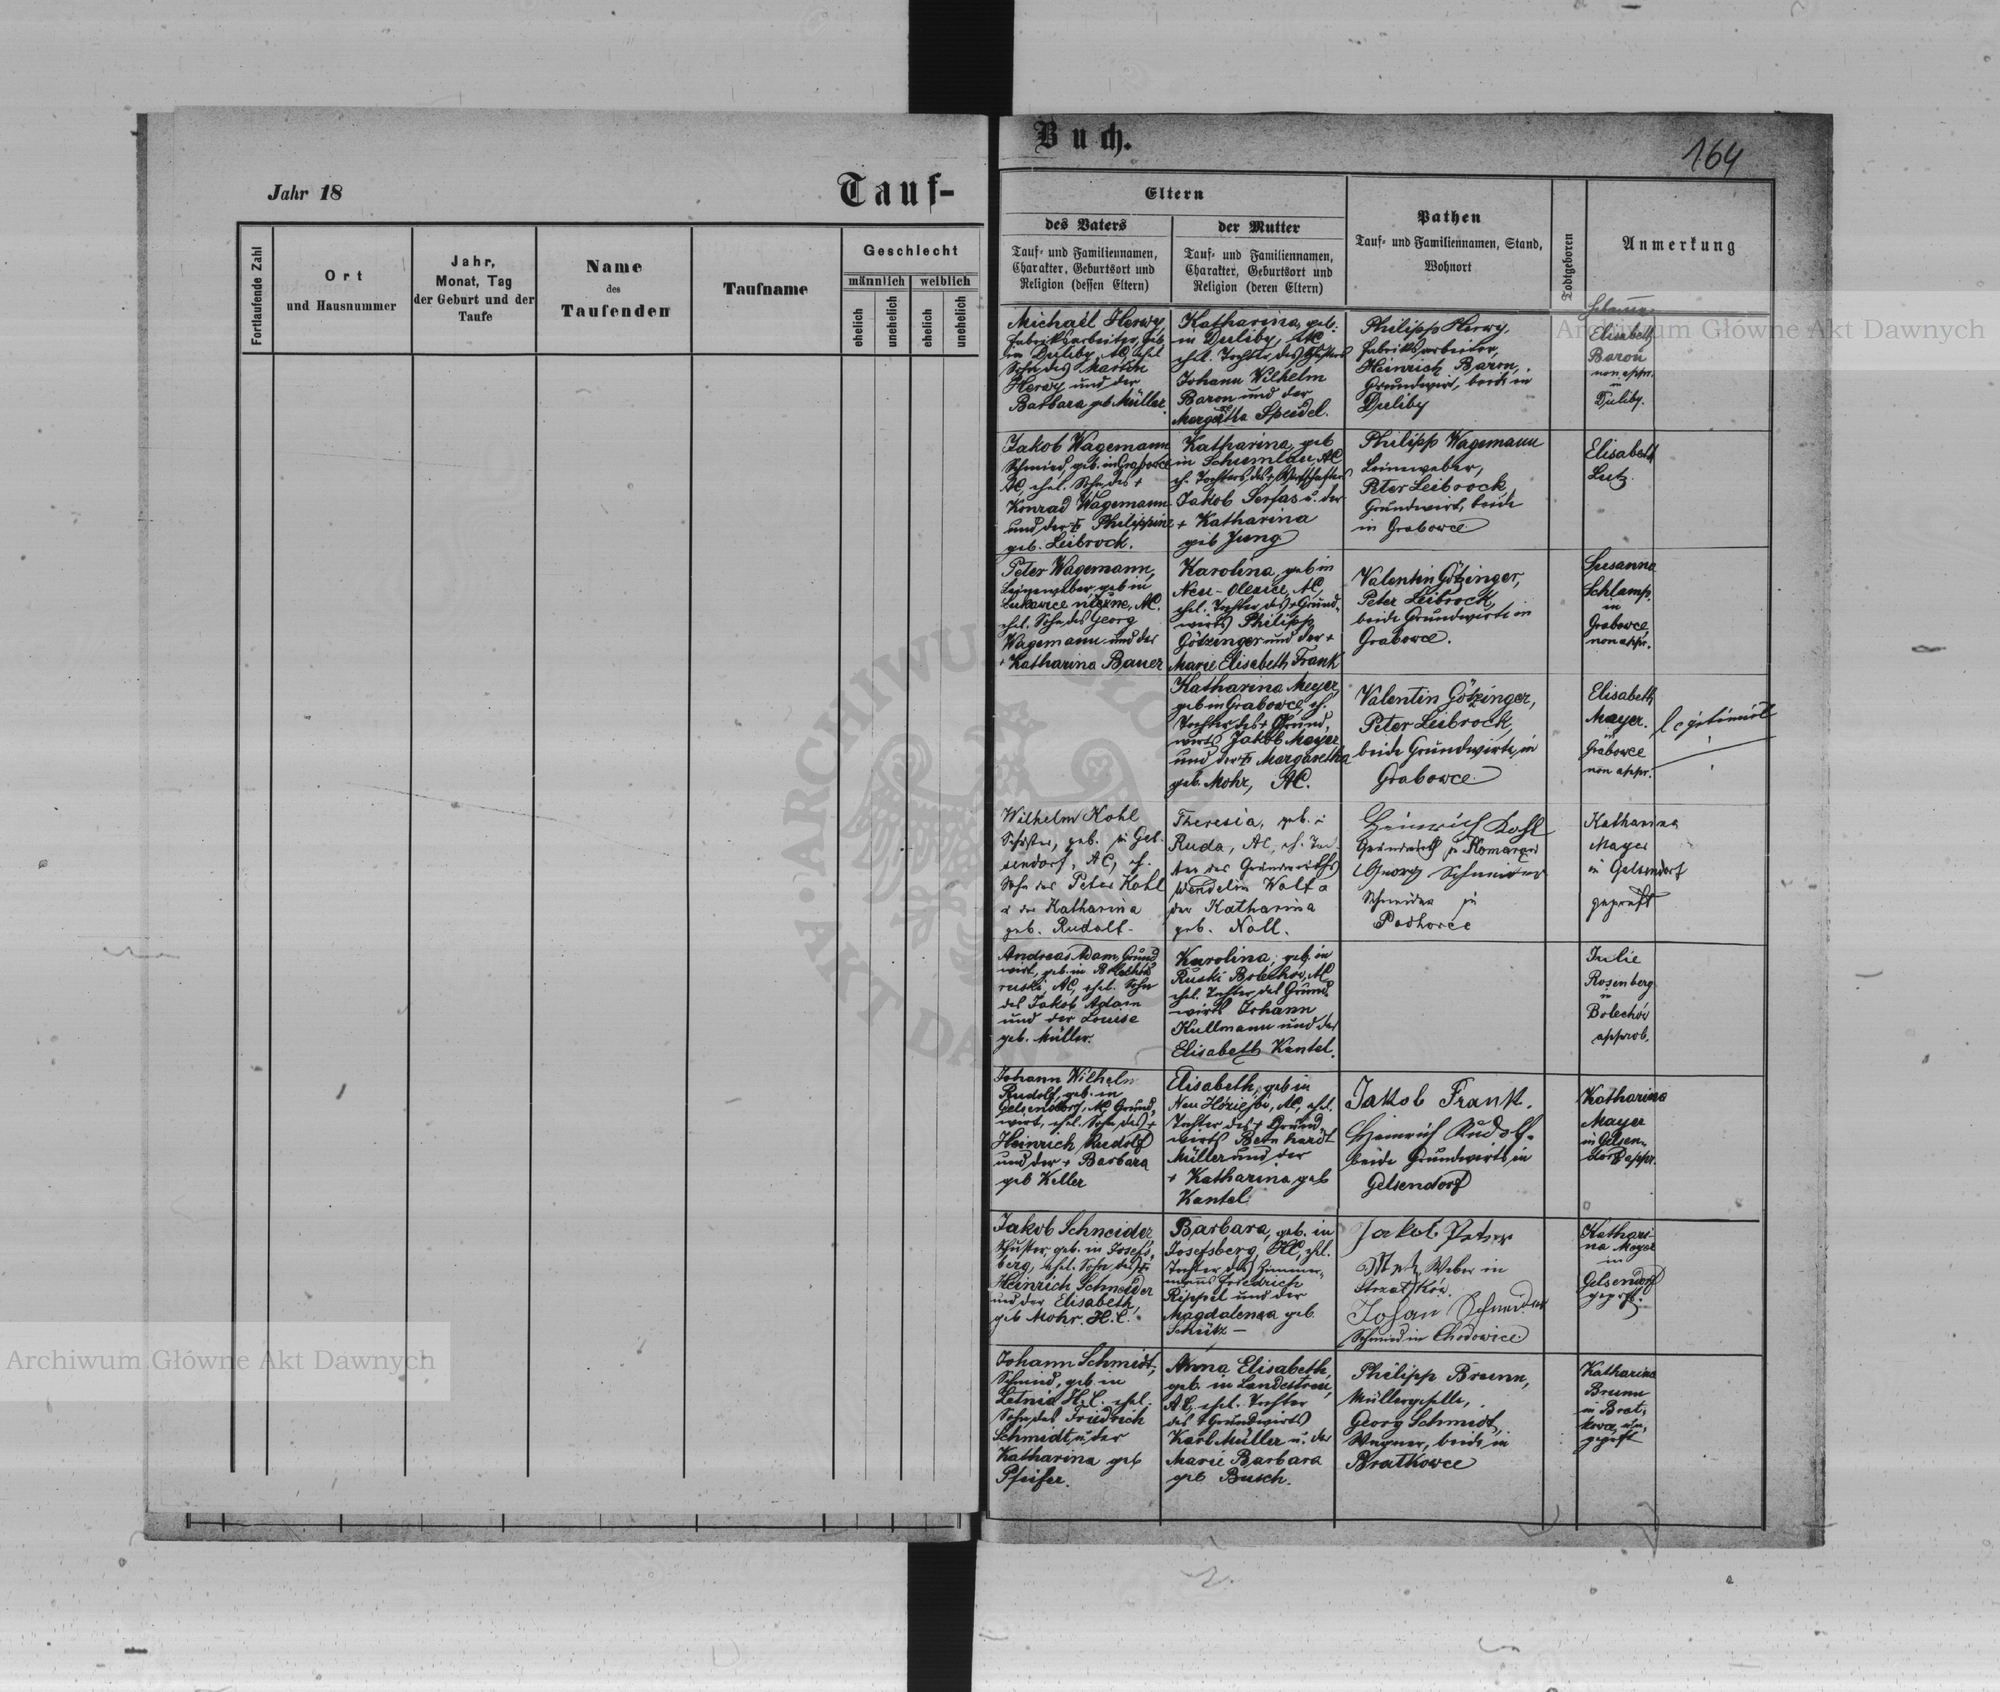 Jahr 18
Tauf-
Fortlaufende Zahl
Ort
und Hausnummer
Jahr,
Monat, Tag
der Geburt und der
Taufe
Name
des
Taufenden
Taufname
Geschlecht
männlich
weiblich
ehelich
unehelich
ehelich
unehelich
Buch.
164
Eltern
des Vaters
Tauf- und Familiennamen,
Charakter, Geburtsort und
Religion (dessen Eltern)
der Mutter
Tauf- und Familiennamen,
Charakter, Geburtsort und
Religion (deren Eltern)
Pathen
Tauf- und Familiennamen, Stand,
Wohnort
Todtgeboren
Anmerkung
Michael Herwy,
Fabriksarbeiter, geb.
in Duliby, AC, ehel.
Sohn des Martin
Herwy und der
Barbara geb. Müller.
Katharina, geb.
in Duliby, AC
ehl. Tochter des
Johann Wilhelm
Baron und der
Margaretha Speidel.
Philipp Herwy,
Fabriksarbeiter,
Heinrich Baron,
Grundwirt, beide in
Duliby
Hebamme
Elisabeth
Baron
non appr.
in
Duliby.
Jakob Wagemann
Schmied, geb. in Grabowce
AC, ehel. Sohn des +
Konrad Wagemann
und der + Philippine
geb. Leibrock.
Katharina, geb
in Schumlau, AC
eh. Tochter des + Wirtschafters
Jakob Serfas u. der
+ Katharina
geb Jung
Philipp Wagemann
Leinweber,
Peter Leibrock
Grundwirt, beide
in Grabowce
Elisabeth
Lutz.
Peter Wagemann,
Leinweber, geb in
Lukawice niżne, AC.
ehel. Sohn des Georg
Wagemann und der
+ Katharina Bauer
Karolina, geb in
Neu-Olexice, AC,
ehel. Tochter des + Grund-
wirts Philipp
Götzinger und der +
Marie Elisabeth Frank
Valentin Götzinger,
Peter Leibrock,
beide Grundwirte in
Grabowce.
Susanna
Schlamp.
in
Grabowce
non appr.
Katharina Meyer,
geb in Grabowce, eh.
Tochter des + Grund-
wirts Jakob Meyer
und der + Margaretha
geb. Mohr, AC.
Valentin Götzinger,
Peter Leibrock,
beide Grundwirte, in
Grabowce
Elisabeth
Mayer.
Grabowce
non appr.
legitimirt
Wilhelm Kohl
Schuster, geb. in Gel-
sendorf, AC, eh.
Sohn des Peter Kohl
u der Katharina
geb. Rudolf.
Theresia, geb. in
Ruda, AC, eh. Toch-
ter des Grundwirths
Wendelin Wolf u
der Katharina
geb. Noll.
Heinrich Kohl
Grundwirth in Komarow
Georg Schneider
Schneider in
Podhorce
Katharina
Mayer
in Gelsendorf
geprüft
Andreas Adam, Grund-
wirt, geb. in Bolechów
ruski, AC, ehel. Sohn
des Jakob Adam
und der Louise
geb. Müller.
Karolina, geb. in
Ruski Bolechów, AC,
ehel. Tochter des Grund-
wirts Johann
Kullmann und der
Elisabeth Kantel.
Julie
Rosenberg
in
Bolechów
approb.
Johann Wilhelm
Rudolf, geb. in
Gelsendorf, AC, Grund-
wirt, ehel. Sohn des +
Heinrich Rudolf
und der + Barbara
geb Keller
Elisabeth, geb in
Neu Horiejów, AC, ehel.
Tochter des + Grund-
wirts Bernhardt
Müller und der
+ Katharina geb
Kantel
Jakob Frank.
Heinrich Rudolf.
beide Grundwirte, in
Gelsendorf
Katharina
Mayer
in Gelsen-
dorf appr.
Jakob Schneider,
Schuster, geb. in Josefs-
berg, ehel. Sohn des +
Heinrich Schneider
und der Elisabeth,
geb Mohr. H.C.
Barbara, geb. in
Josefsberg, HC, ehl.
Tochter des Zimmer-
manns Friedrich
Rippel und der
Magdalena geb.
Schütz —
Jakob Peter
Weber in
Johan Schneider
Schmied in Chodowice
Kathari-
na Mayer
in
Gelsendorf
geprft.
Johann Schmidt,
Schmied, geb in
Letnia H.C. ehel.
Sohn des Friedrich
Schmidt u. der
Katharina geb
Pfeifer.
Anna Elisabeth,
geb. in Landestreu,
AC, ehel. Tochter
des + Grundwirts
Karl Müller u. der
Marie Barbara
geb Busch.
Philipp Brunn,
Müllergeselle,
Georg Schmidt,
Wagner, beide in
Bratkowce
Katharina
Brunn
in Brat-
kowce, un-
geprft
Archiwum Główne Akt Dawnych
Archiwum Główne Akt Dawnych